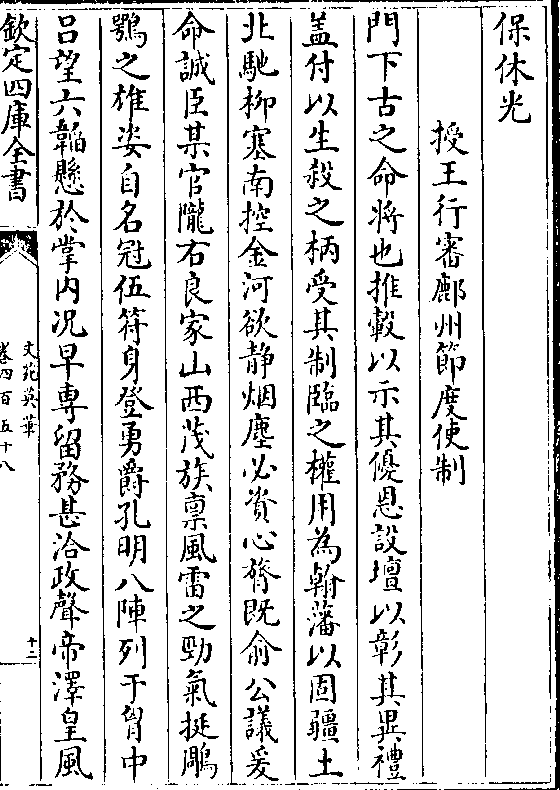 保休光
授王行審鄜州節度使制
門下古之命將也推轂以示其優恩設壇以彰其異禮
盖付以生殺之柄受其制臨之權用為翰藩以固疆土
北馳柳塞南控金河欲静烟塵必資心膂既俞公議爰
命誠臣某官隴右良家山西茂族禀風雷之勁氣挺鵰
鶚之雄姿自名冠伍符身登勇爵孔明八陣列于胷中
吕望六韜懸於掌内况早専留務甚洽政聲帝澤皇風
欽定四庫全書
文苑英華
卷四百五十八
十三